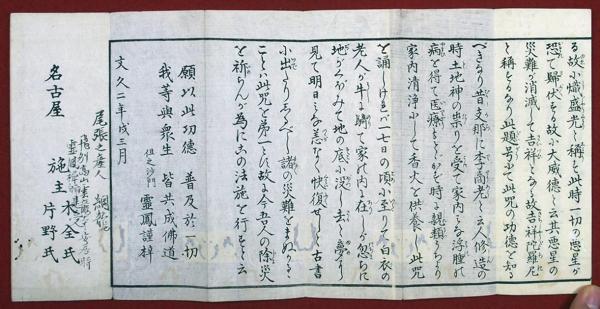 る故小熾盛光と稱す此時一切の悪星が
恐て歸伏する故小大威德と云其悪星の
災難が消滅して吉祥となる故吉祥陀羅尼
と稱するなり此題号小て此呪の功德を知る
べきなり昔支那に李商老と云人修造の
時土地神の祟りを受て家内みな浮腫の
病を得て医療
家内清浄小して香火を供養し此呪
を誦しければ一七日の頃小至りて白衣の
老人が牛に騎て家の内に在しが忽ちに
地がくぼみて地の底小没し去ると夢に
見て明日みな恙なく快復せ 古書
小出たり 諸の災難をまぬかるゝ
ことハ此呪を第一とす故に今吾人の除災
を祈らんが為に此の法施を行もと云
願以此功德 普及於一切
我等與衆生 皆共成佛道
但之沙門 靈鳳謹梓
文久二年戌三月
尾張之産人
名古屋 施主 木全氏
片野氏